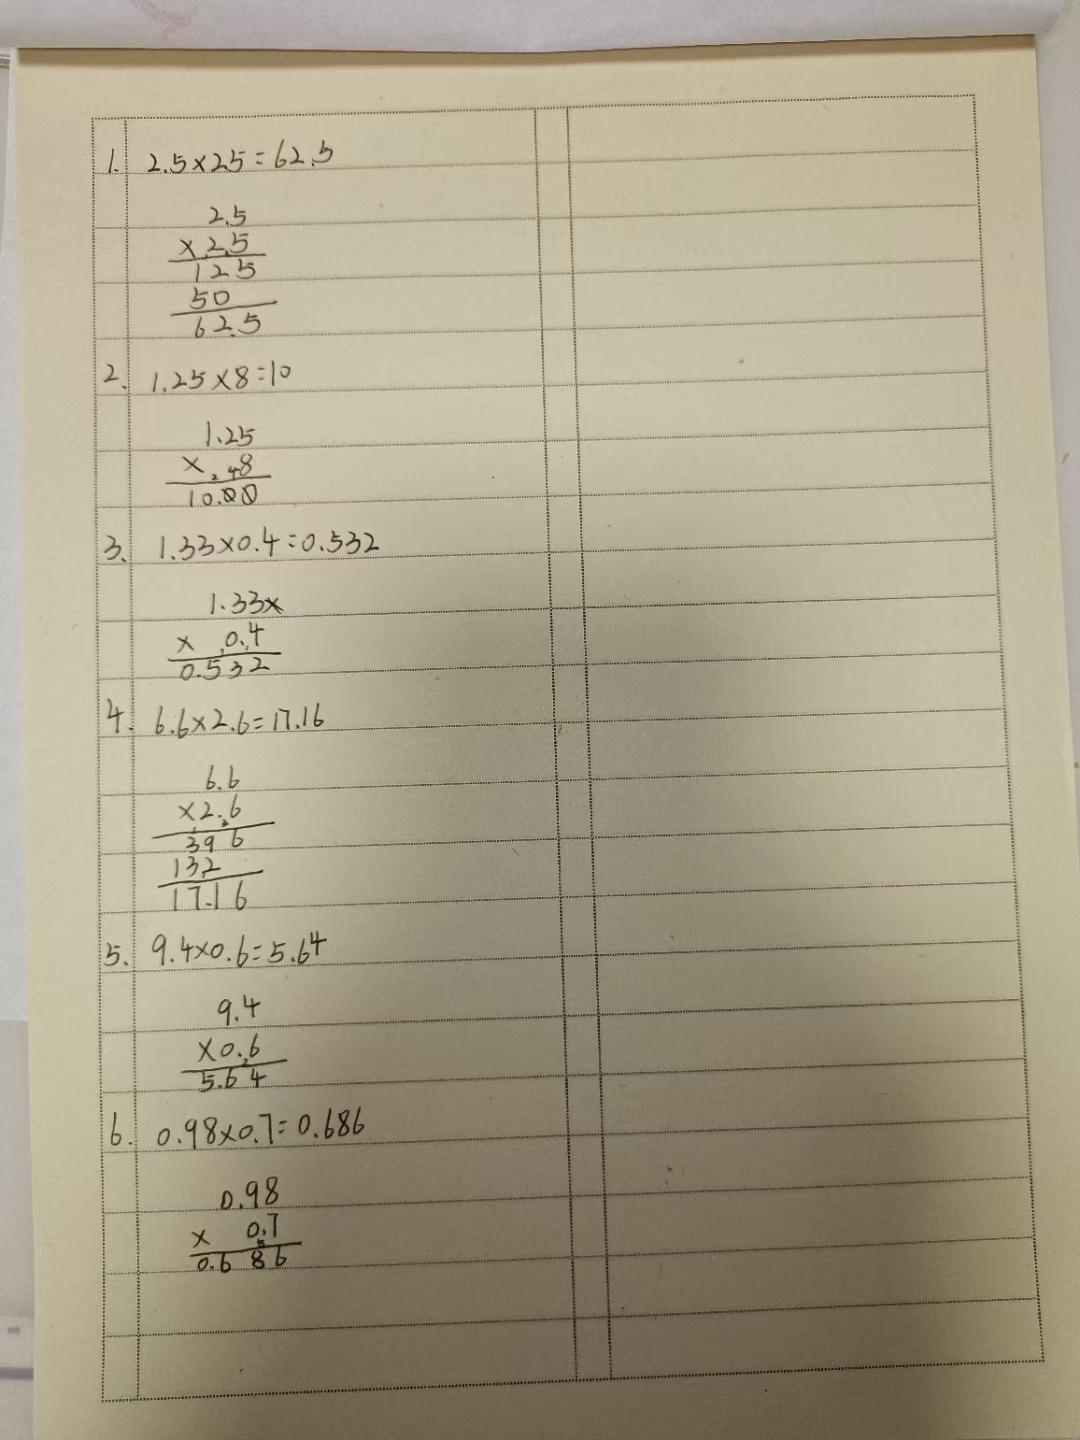 1. 2.5×25=62.5
2.5
× 2.5
125
50
62.5
2. 1.25×8=10
1.25
× 2 4 8
10.00
3. 1.33×0.4=0.532
1.33×
× 0.4
0.532
4. 6.6×2.6=17.16
6.6
×2.6
396
132
17.16
5. 9.4×0.6=5.64
9.4
×0.6
5.64
6. 0.98×0.7=0.686
0.98
× 0.7
0.686